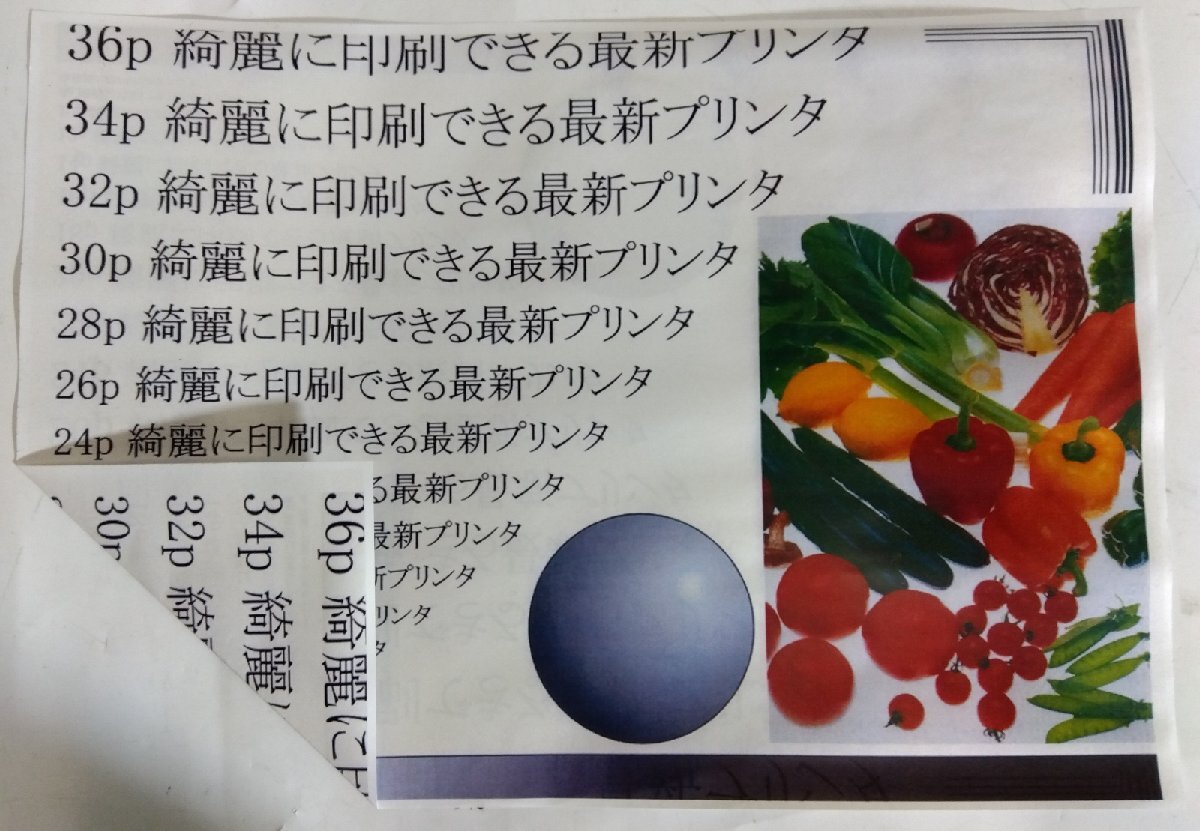 36p 綺麗に印刷できる最新プリンタ
34p 綺麗に印刷できる最新プリンタ
32p 綺麗に印刷できる最新プリンタ
30p 綺麗に印刷できる最新プリンタ
28p 綺麗に印刷できる最新プリンタ
26p 綺麗に印刷できる最新プリンタ
24p 綺麗に印刷できる最新プリンタ
る最新プリンタ
最新プリンタ
新プリンタ
リンタ
タ
36p 綺麗に
34p 綺麗に
32p 綺
30p